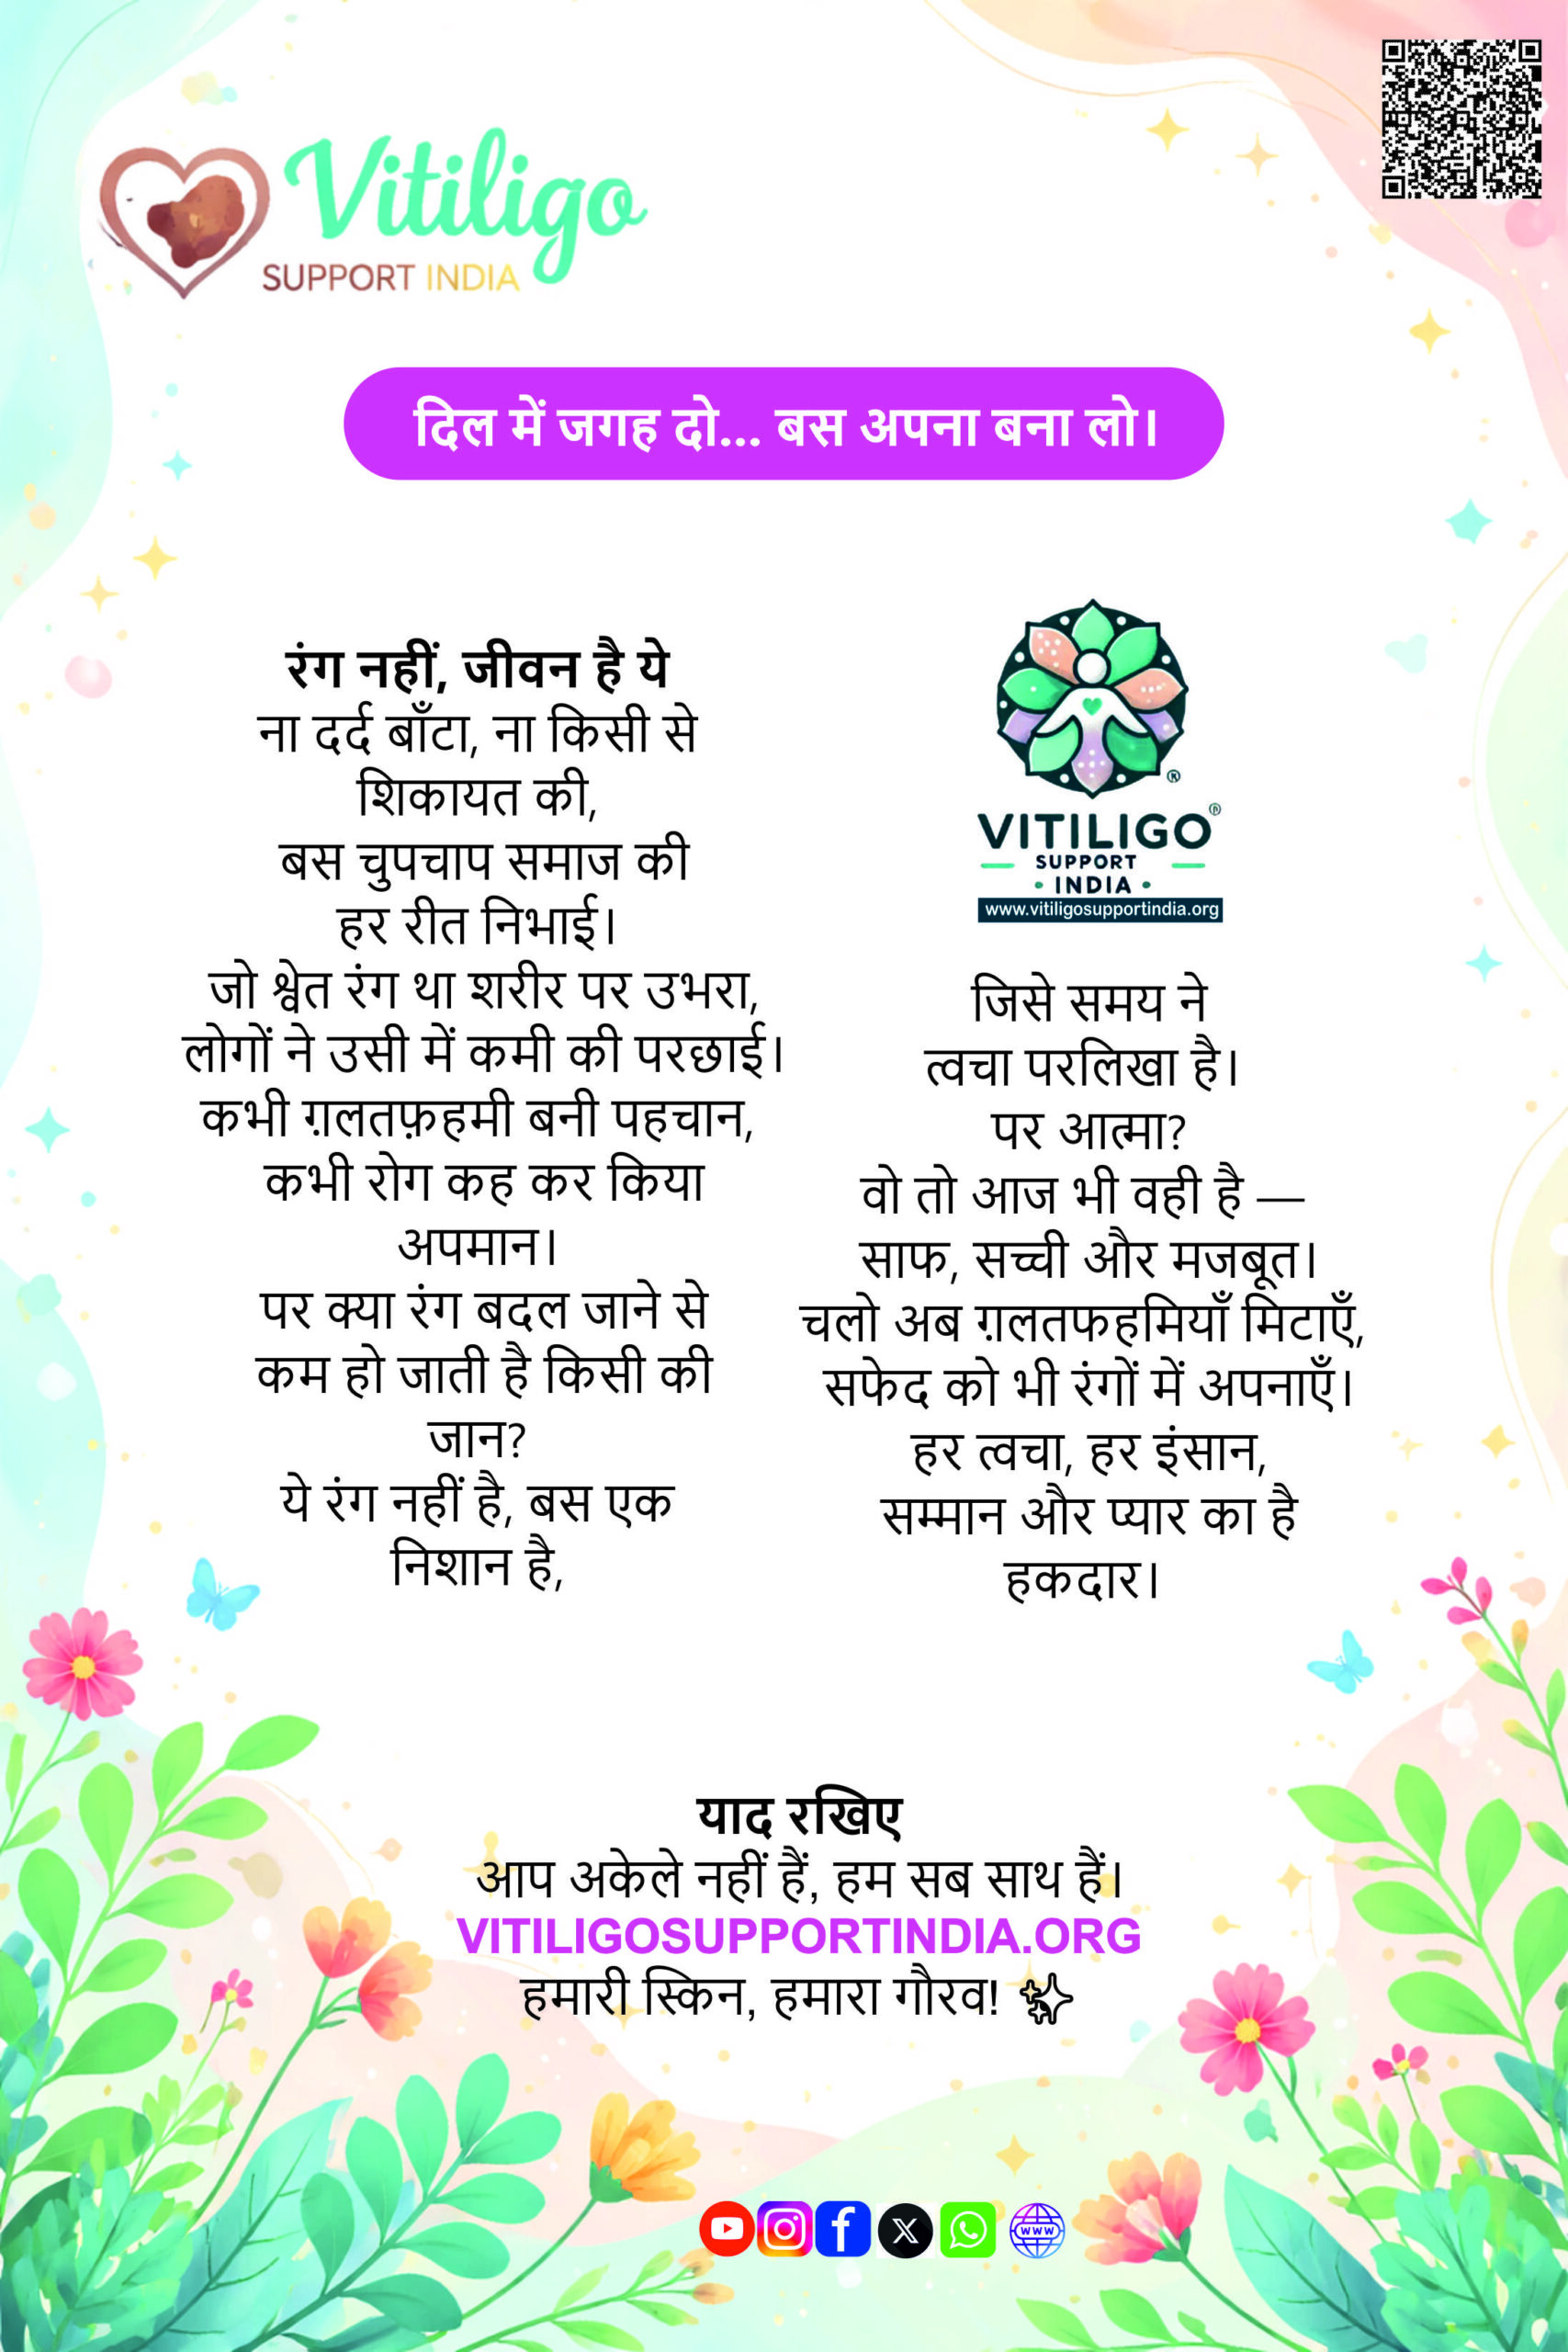 Vitiligo
SUPPORT INDIA
दिल में जगह दो... बस अपना बना लो।
रंग नहीं, जीवन है ये
ना दर्द बाँटा, ना किसी से
शिकायत की,
बस चुपचाप समाज की
हर रीत निभाई।
जो श्वेत रंग था शरीर पर उभरा,
लोगों ने उसी में कमी की परछाई।
कभी ग़लतफ़हमी बनी पहचान,
कभी रोग कह कर किया
अपमान।
पर क्या रंग बदल जाने से
कम हो जाती है किसी की
जान?
ये रंग नहीं है, बस एक
निशान है,
VITILIGO®
SUPPORT
• INDIA •
www.vitiligosupportindia.org
जिसे समय ने
त्वचा परलिखा है।
पर आत्मा?
वो तो आज भी वही है —
साफ, सच्ची और मजबूत।
चलो अब ग़लतफहमियाँ मिटाएँ,
सफेद को भी रंगों में अपनाएँ।
हर त्वचा, हर इंसान,
सम्मान और प्यार का है
हकदार।
याद रखिए
आप अकेले नहीं हैं, हम सब साथ हैं।
VITILIGOSUPPORTINDIA.ORG
हमारी स्किन, हमारा गौरव!
www